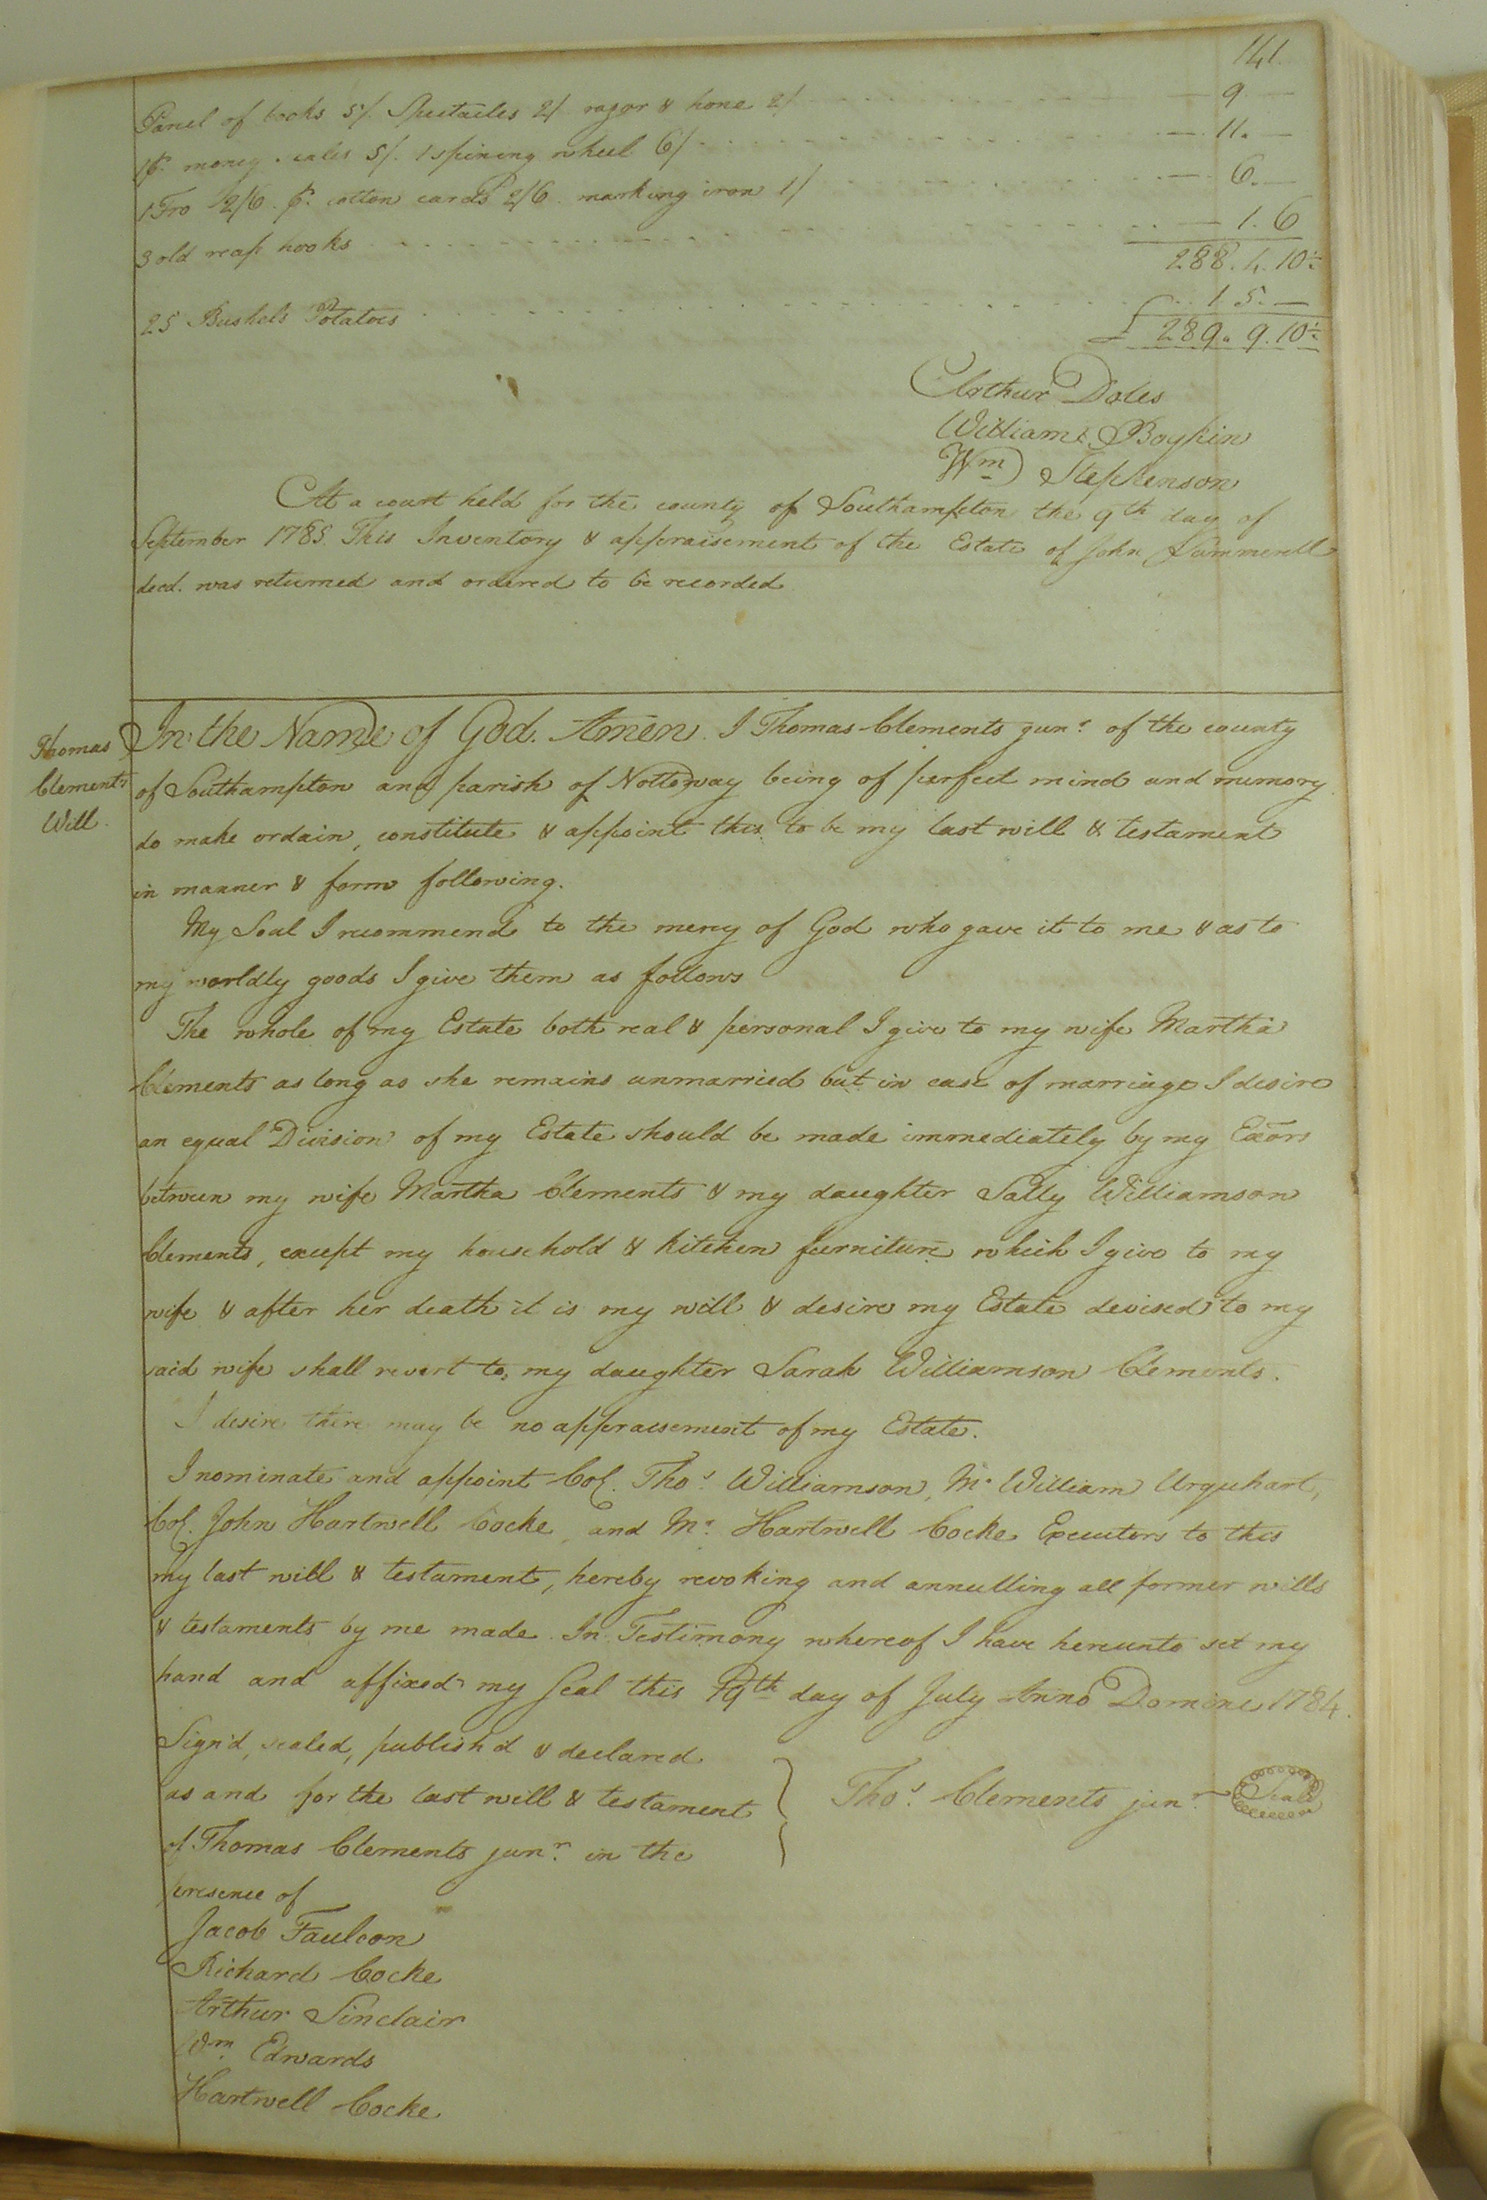 141.
Parcel of books 5/. Spectacles 2/ razor & hone 2/ — 9 —
1 pr. money scales 5/. 1 spining wheel 6/ — 11. —
1 Fro 2/6. pr. cotton cards 2/6. marking iron 1/ — 6. —
3 old reap hooks — 1. 6
288. 4. 10½
25 Bushels Potatoes 1. 5. —
£ 289. 9. 10½
Arthur Doles
William Boykin
Wm Stephenson
At a court held for the county of Southampton the 9th day of
September 1785 This Inventory & appraisement of the Estate of John Summerell
decd. was returned and ordered to be recorded
Thomas
Clements
Will.
In the Name of God. Amen. I Thomas Clements junr. of the county
of Southampton and parish of Nottoway being of perfect mind and memory
do make ordain, constitute & appoint this to be my last will & testament
in manner & form following.
My Soul I recommend to the mercy of God who gave it to me & as to
my worldly goods I give them as follows
The whole of my Estate both real & personal I give to my wife Martha
Clements as long as she remains unmarried but in case of marriage I desire
an equal Division of my Estate should be made immediately by my Exors
between my wife Martha Clements & my daughter Sally Williamson
Clements, except my household & kitchen furniture which I give to my
wife & after her death it is my will & desire my Estate devised to my
said wife shall revert to my daughter Sarah Williamson Clements.
I desire there may be no appraisement of my Estate.
I nominate and appoint Col. Thos. Williamson, Mr. William Urquhart,
Col. John Hartwell Cocke, and Mr. Hartwell Cocke Executors to this
my last will & testament, hereby revoking and annulling all former wills
& testaments by me made. In Testimony whereof I have hereunto set my
hand and affixed my Seal this 19th day of July Anno Domini 1784.
Sign'd, sealed, publish'd & declared
as and for the last will & testament
of Thomas Clements junr. in the
presence of
Thos. Clements junr. Seal
Jacob Faulcon
Richard Cocke
Arthur Sinclair
Wm. Edwards
Hartwell Cocke